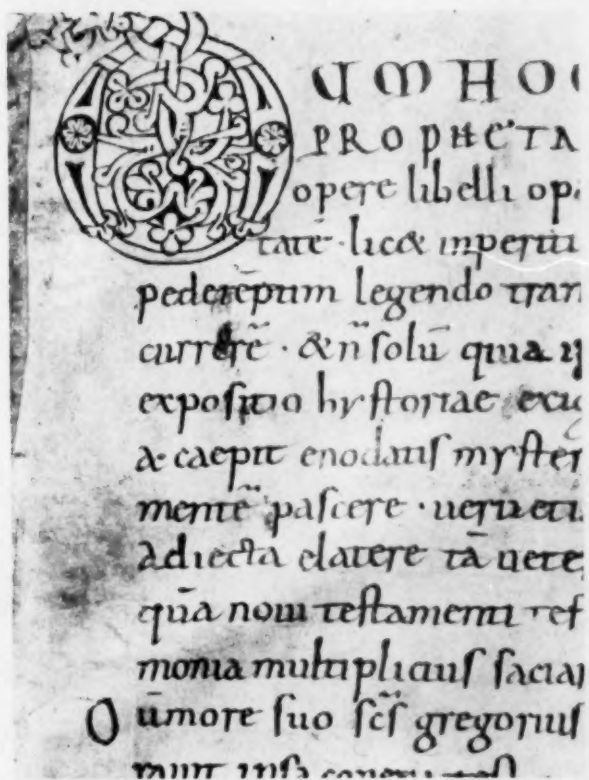 DUM HO
PROPHETA
opere libelli opa
tatē · lic& inperiti
pedetēptim legendo tran
currerē · &n̄ solū quia
expositio hystoriae exci
a· caepit enodatis myster
mentē pascere · ueru eti
adiecta elatere tā uete
quā noui testamenti tes
monia multiplicius saciar
Dumore suo scs̄ gregorius